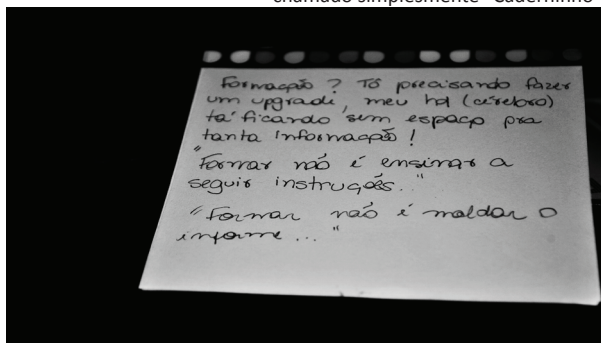 chamado simplesmente "Caderninho
Formação ? Tô precisando fazer
um upgrade, meu hd (cérebro)
tá ficando sem espaço pra
tanta informação !
"Formar não é ensinar a
seguir instruções..."
"Formar não é moldar o
informe ... "